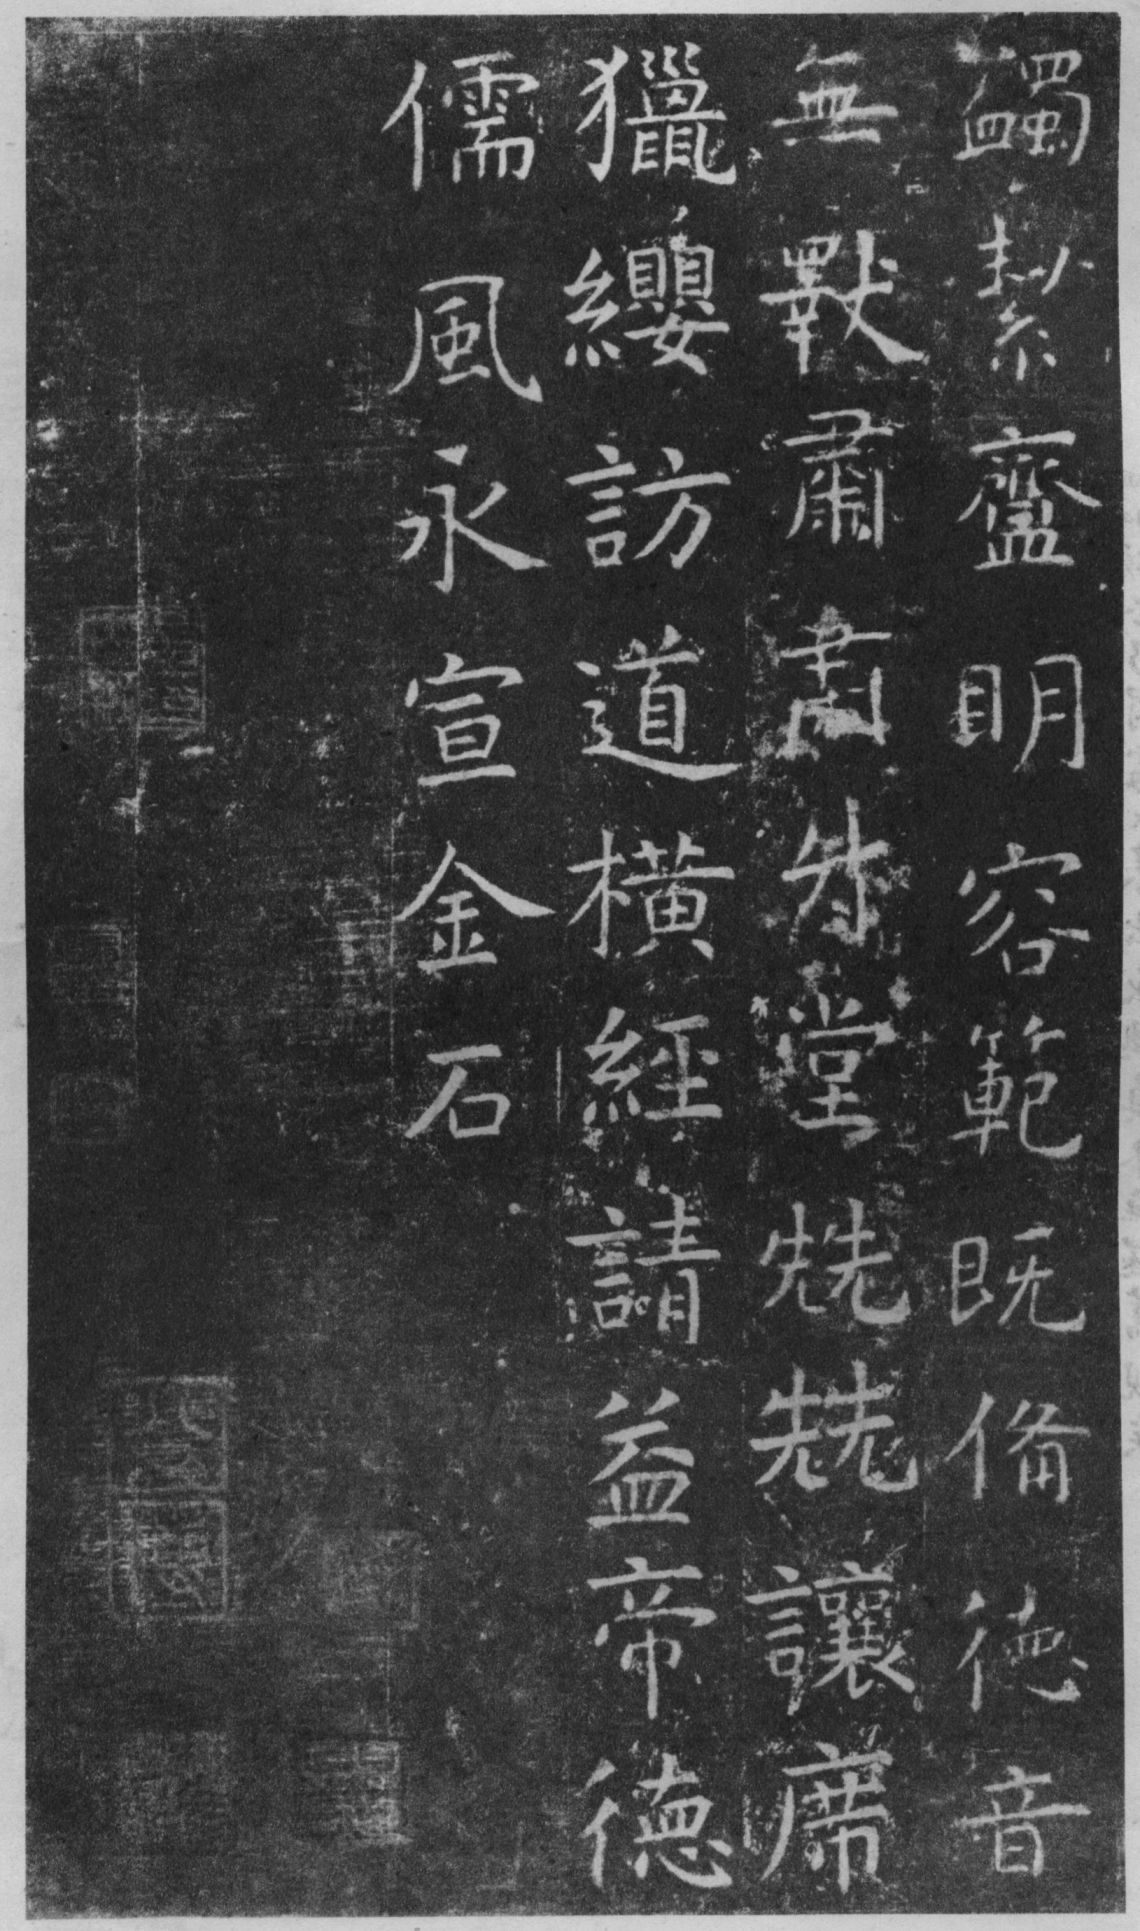 蠲絜齍明容範既備德音
無斁肅肅升堂兟兟讓席
獵纓訪道橫經請益帝德
儒風永宣金石